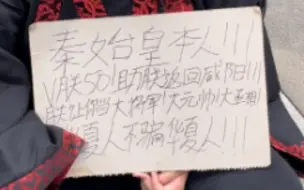 秦始皇本人!!!
V朕50!助朕返回咸阳!!!
朕让你当大将军!大元帅!大丞相!
华夏人不骗华夏人!!!